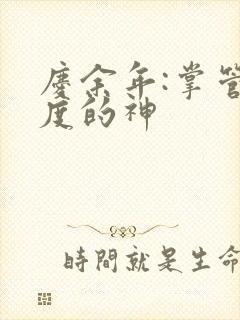 慶余年:掌管
度的神
時間就是生命